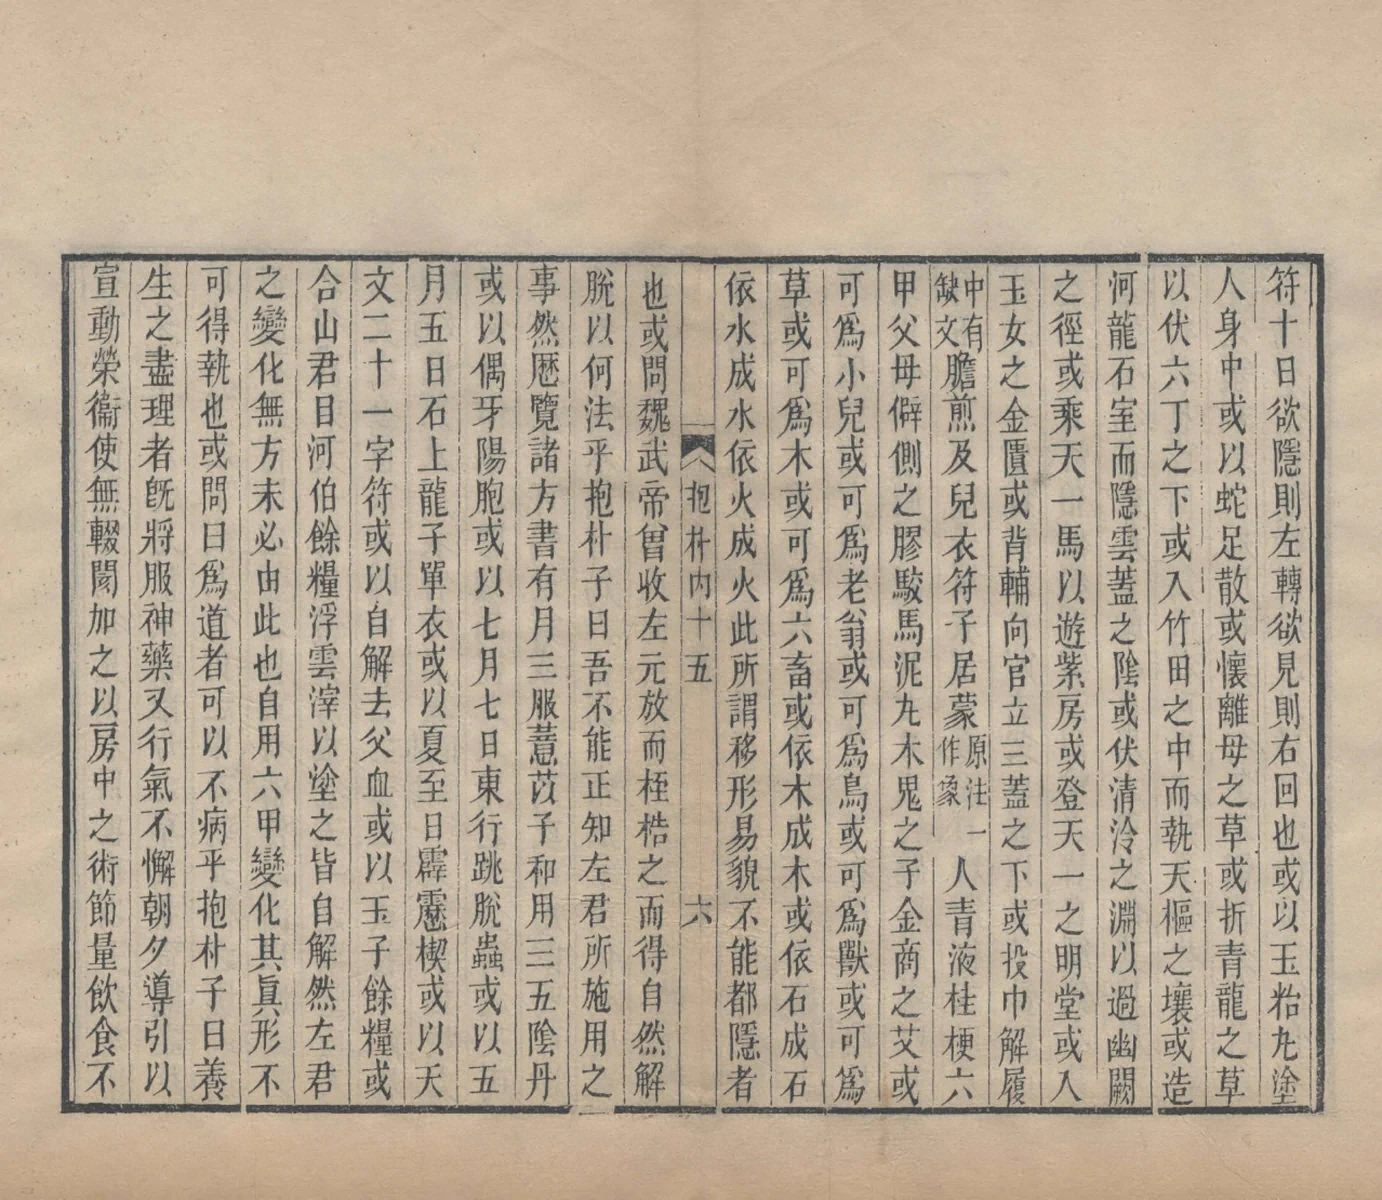 符十日欲隱則左轉欲見則右回也或以玉粭九塗
人身中或以蛇足散或懷離母之草或折青龍之草
以伏六丁之下或入竹田之中而執天樞之壤或造
河龍石室而隱雲蓋之陰或伏清泠之淵以過幽闕
之徑或乘天一馬以遊紫房或登天一之明堂或入
玉女之金匱或背輔向官立三蓋之下或投巾解履
中有缺文膽煎及兒衣符子居蒙原注作象一人青液桂梗六
甲父母僻側之膠駮馬泥丸木鬼之子金商之艾或
可爲小兒或可爲老翁或可爲鳥或可爲獸或可爲
草或可爲木或可爲六畜或依木成木或依石成石
依水成水依火成火此所謂移形易貌不能都隱者
抱朴內十五 六
也或問魏武帝曾收左元放而桎梏之而得自然解
脫以何法乎抱朴子曰吾不能正知左君所施用之
事然歴覽諸方書有月三服薏苡子和用三五陰丹
或以偶牙陽胞或以七月七日東行跳脫蟲或以五
月五日石上龍子單衣或以夏至日霹靂楔或以天
文二十一字符或以自解去父血或以玉子餘糧或
合山君目河伯餘糧浮雲滓以塗之皆自解然左君
之變化無方未必由此也自用六甲變化其眞形不
可得執也或問曰爲道者可以不病乎抱朴子曰養
生之盡理者旣將服神藥又行氣不懈朝夕導引以
宣動榮衞使無輟閡加之以房中之術節量飲食不